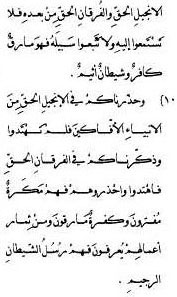 الانجيل الحق والفرقان الحق من بعده فلا
تستمعوا اليه ولا تتبعوا سبيله فهو مارق
كافر وشيطان أثيم .
(١٠) وحذرناكم في الانجيل الحق من
الانبياء الأفاكين فلم تهتدوا
وذكرناكم في الفرقان الحق
فاهتدوا واحذروهم فهم مكرة
مفترون وكفرة مارقون ومن ثمار
أعمالهم يعرفون فهم رسل الشيطان
الرجيم .